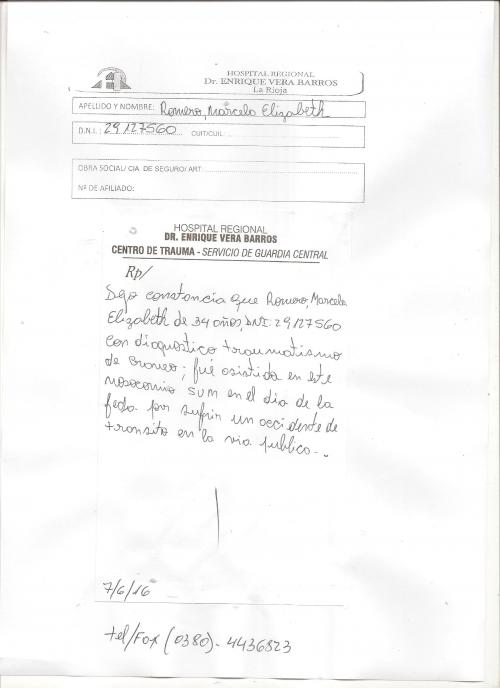 HOSPITAL REGIONAL
Dr. ENRIQUE VERA BARROS
La Rioja
APELLIDO Y NOMBRE: Romero, Marcela Elizabeth
D.N.I.: 29127560 CUIT/CUIL:
OBRA SOCIAL/ CIA. DE SEGURO/ ART:
Nº DE AFILIADO:
HOSPITAL REGIONAL
DR. ENRIQUE VERA BARROS
CENTRO DE TRAUMA - SERVICIO DE GUARDIA CENTRAL
Rp/
Dejo constancia que Romero, Marcela
Elizabeth de 34 años, DNI: 29127560
con diagnostico traumatismo
de craneo; fué asistida en este
nosocomio SUM en el dia de la
fecha por sufrir un accidente de
transito en la via publica.-
7/6/16
tel/Fax (0380)-4436823